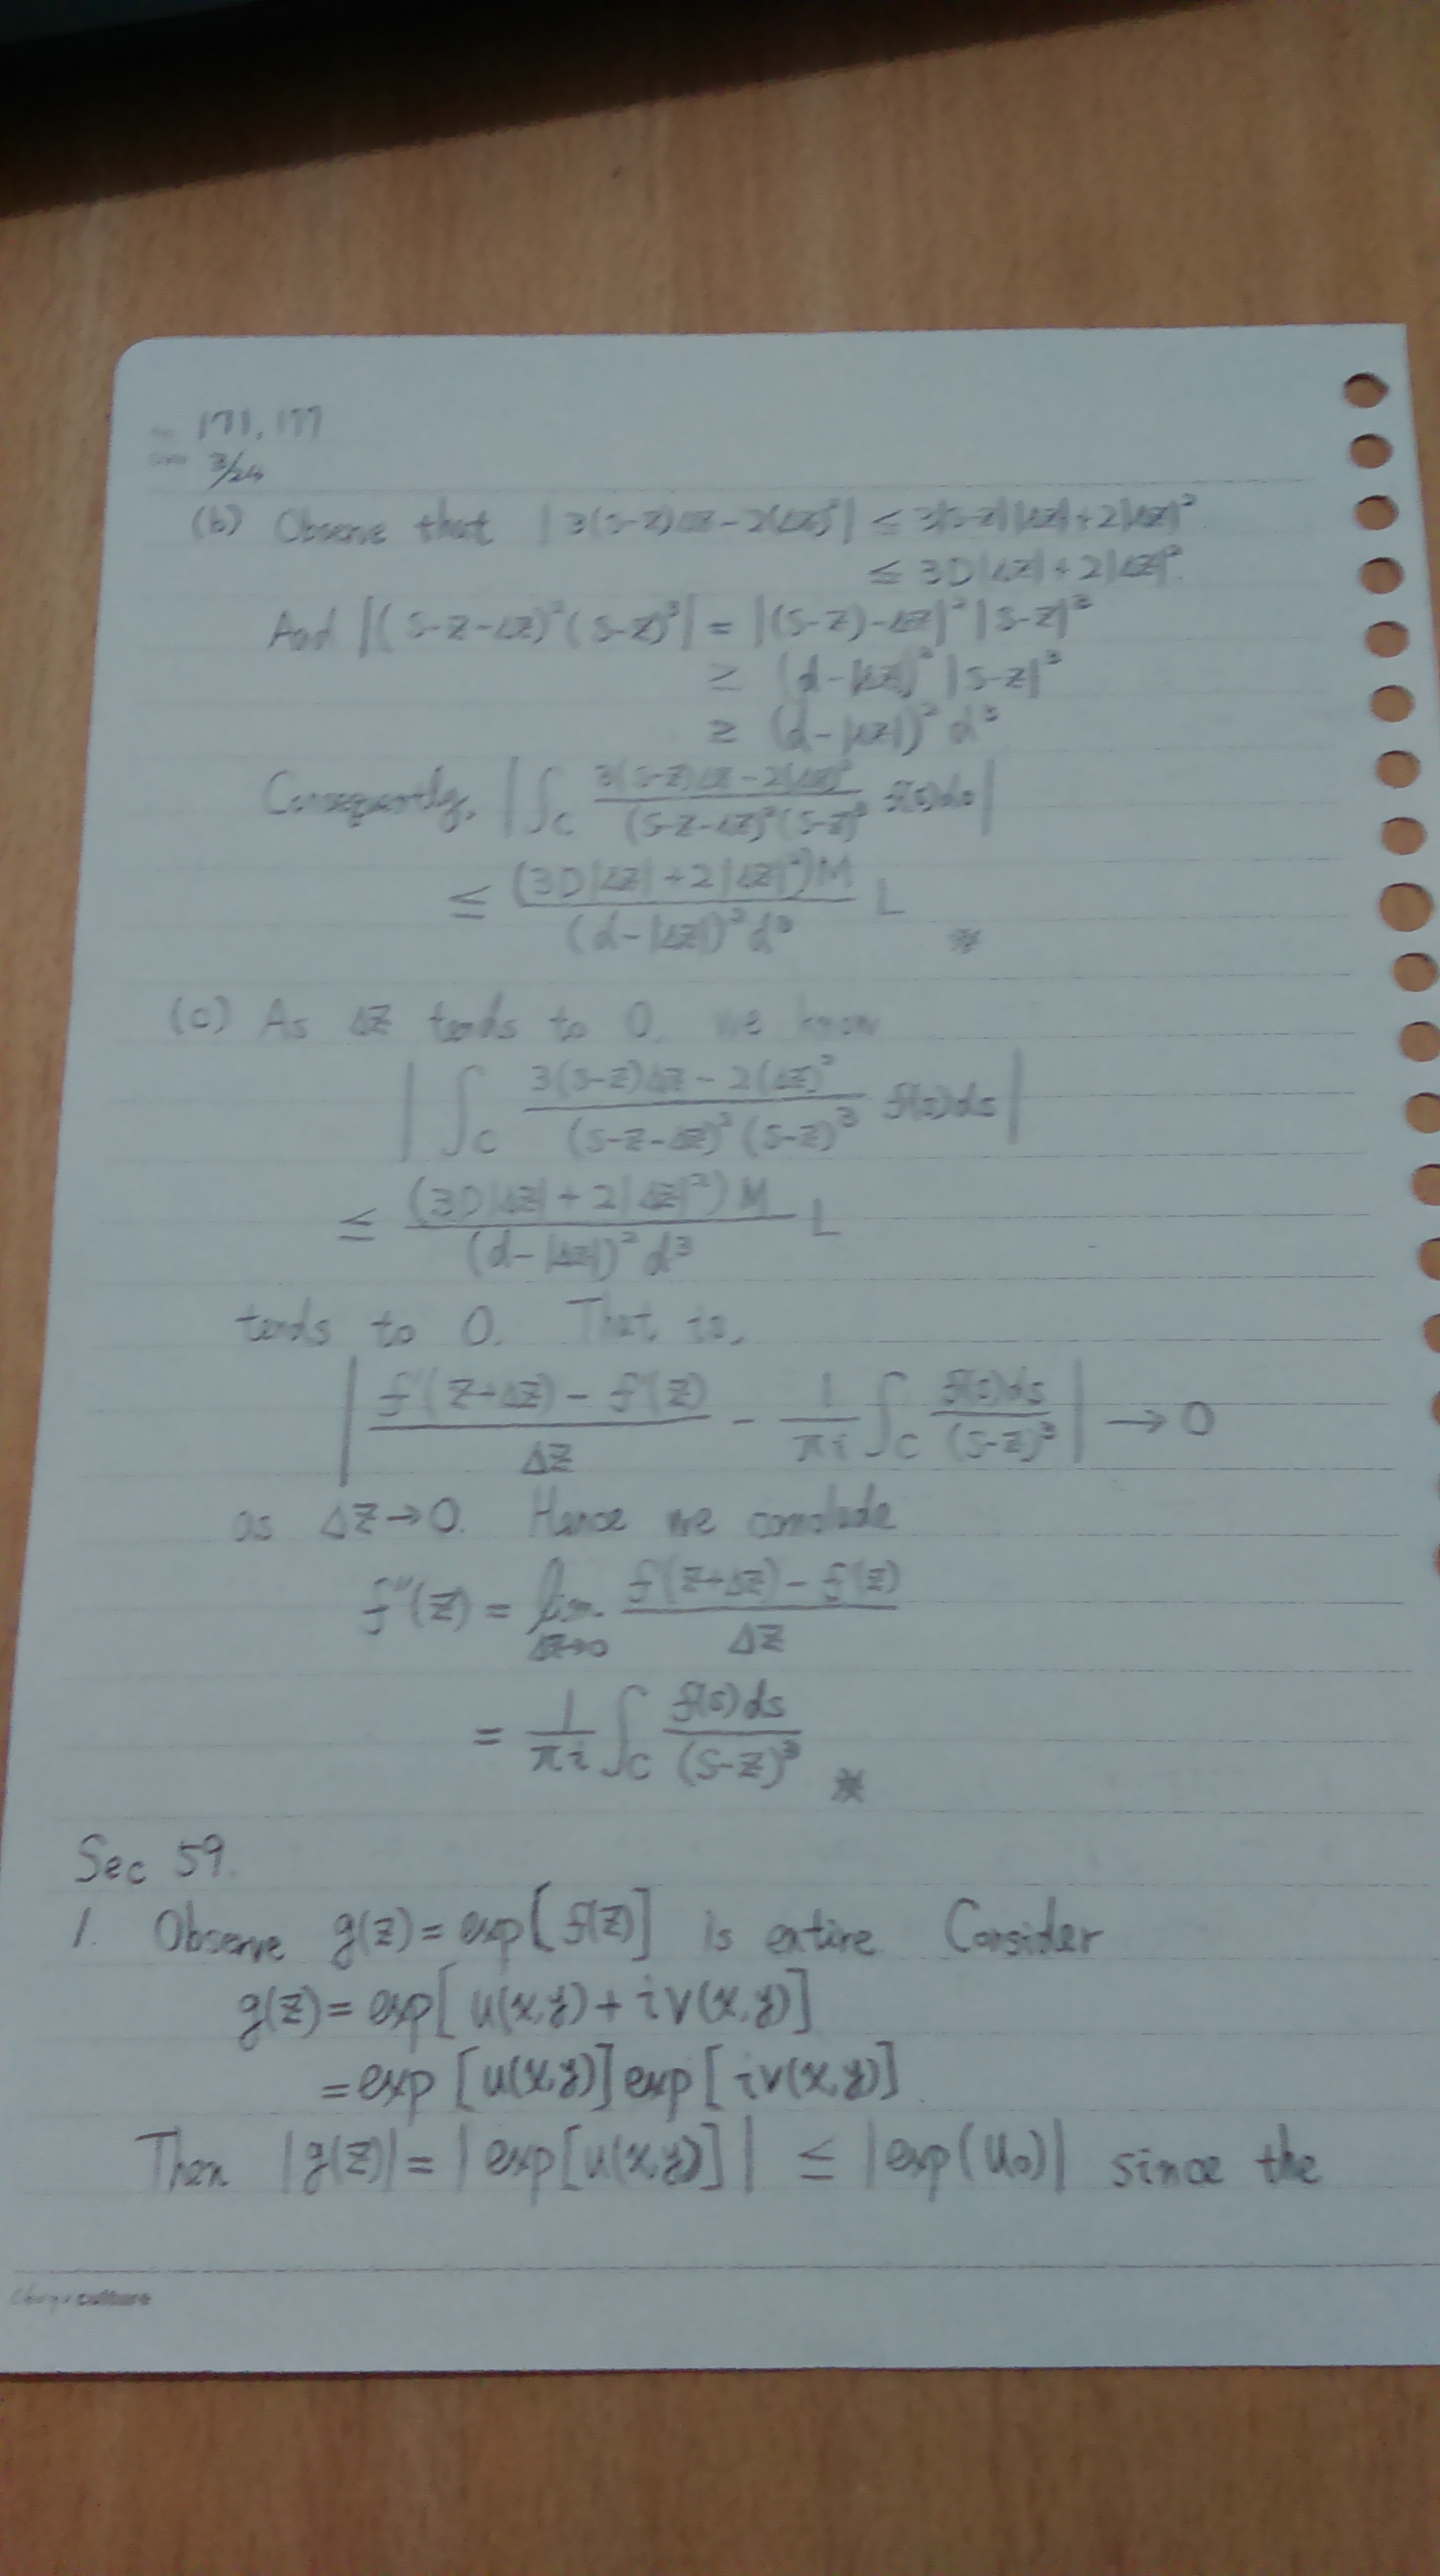 171, 177
3/24
(b) Observe that |3(s-z)Δz - 2(Δz)²| ≤ 3|s-z||Δz| + 2|Δz|²
≤ 3D|Δz| + 2|Δz|².
And |(s-z-Δz)²(s-z)³| = |(s-z)-Δz|²|s-z|³
≥ (d-|Δz|)²|s-z|³
≥ (d-|Δz|)² d³
Consequently, |∫_C (3(s-z)Δz - 2(Δz)²)/((s-z-Δz)²(s-z)³) f(s)ds|
≤ ((3D|Δz| + 2|Δz|²)M)/((d-|Δz|)² d³) L
(c) As Δz tends to 0, we know
|∫_C (3(s-z)Δz - 2(Δz)²)/((s-z-Δz)²(s-z)³) f(s)ds|
≤ ((3D|Δz| + 2|Δz|²)M)/((d-|Δz|)² d³) L
tends to 0. That is,
|(f'(z+Δz) - f'(z))/Δz - 1/(πi) ∫_C f(s)ds/(s-z)³| → 0
as Δz→0. Hence we conclude
f''(z) = lim_{Δz→0} (f'(z+Δz) - f'(z))/Δz
= 1/(πi) ∫_C f(s)ds/(s-z)³
Sec 59.
1. Observe g(z) = exp[f(z)] is entire. Consider
g(z) = exp[u(x,y) + iv(x,y)]
= exp[u(x,y)] exp[iv(x,y)].
Then |g(z)| = |exp[u(x,y)]| ≤ |exp(u₀)| since the
culture